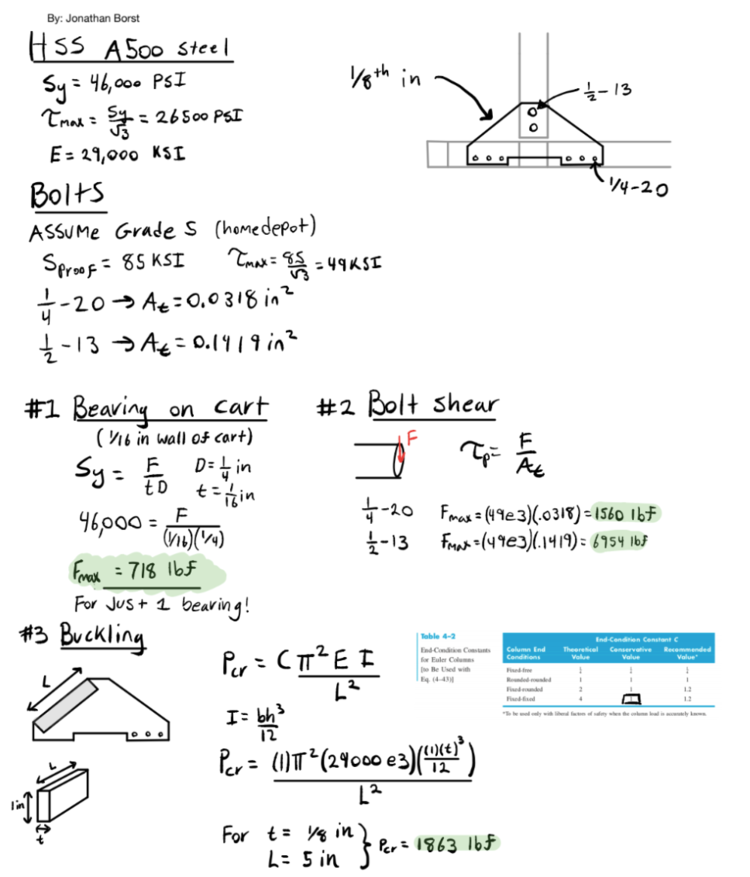 By: Jonathan Borst
HSS A500 steel
Sy = 46,000 PSI
τmax = Sy/√3 = 26500 PSI
E = 29,000 KSI
1/8th in
1/2-13
1/4-20
Bolts
ASSUME Grade 5 (homedepot)
Sproof = 85 KSI τmax = 85/√3 = 49KSI
1/4-20 → At = 0.0318 in²
1/2-13 → At = 0.1419 in²
#1 Bearing on cart
(1/16 in wall of cart)
Sy = F/tD D = 1/4 in
t = 1/16 in
46,000 = F/(1/16)(1/4)
Fmax = 718 lbf
For Just 1 bearing!
#2 Bolt shear
F
τp = F/At
1/4-20 Fmax = (49e3)(.0318) = 1560 lbf
1/2-13 Fmax = (49e3)(.1419) = 6954 lbf
#3 Buckling
L
L
1in
t
Pcr = Cπ²EI/L²
I = bh³/12
Pcr = (1)π²(29000e3)((1)(t)³/12)/L²
For t = 1/8 in
L = 5 in } Pcr = 1863 lbf
Table 4-2
End-Condition Constants
for Euler Columns
[to Be Used with
Eq. (4-43)]
End-Condition Constant C
Column End Conditions Theoretical Value Conservative Value Recommended Value*
Fixed-free
Rounded-rounded 1 1 1
Fixed-rounded 2 1 1.2
Fixed-fixed 4 1 1.2
*To be used only with liberal factors of safety when the column load is accurately known.